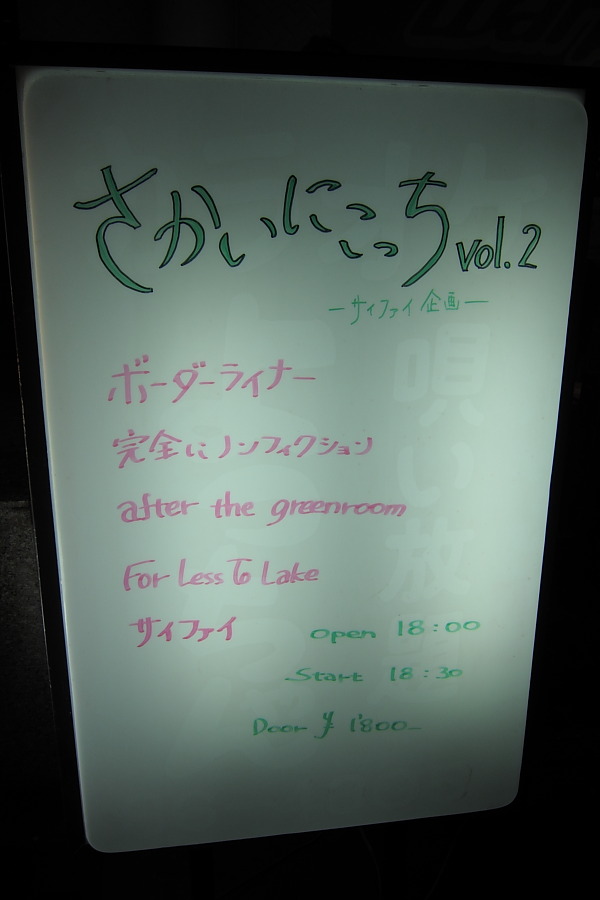 さかいにこっち vol.2
－サイファイ企画－
ボーダーライナー
完全にノンフィクション
after the greenroom
For Less To Lake
サイファイ
Open 18:00
Start 18:30
Door ¥ 1'800-